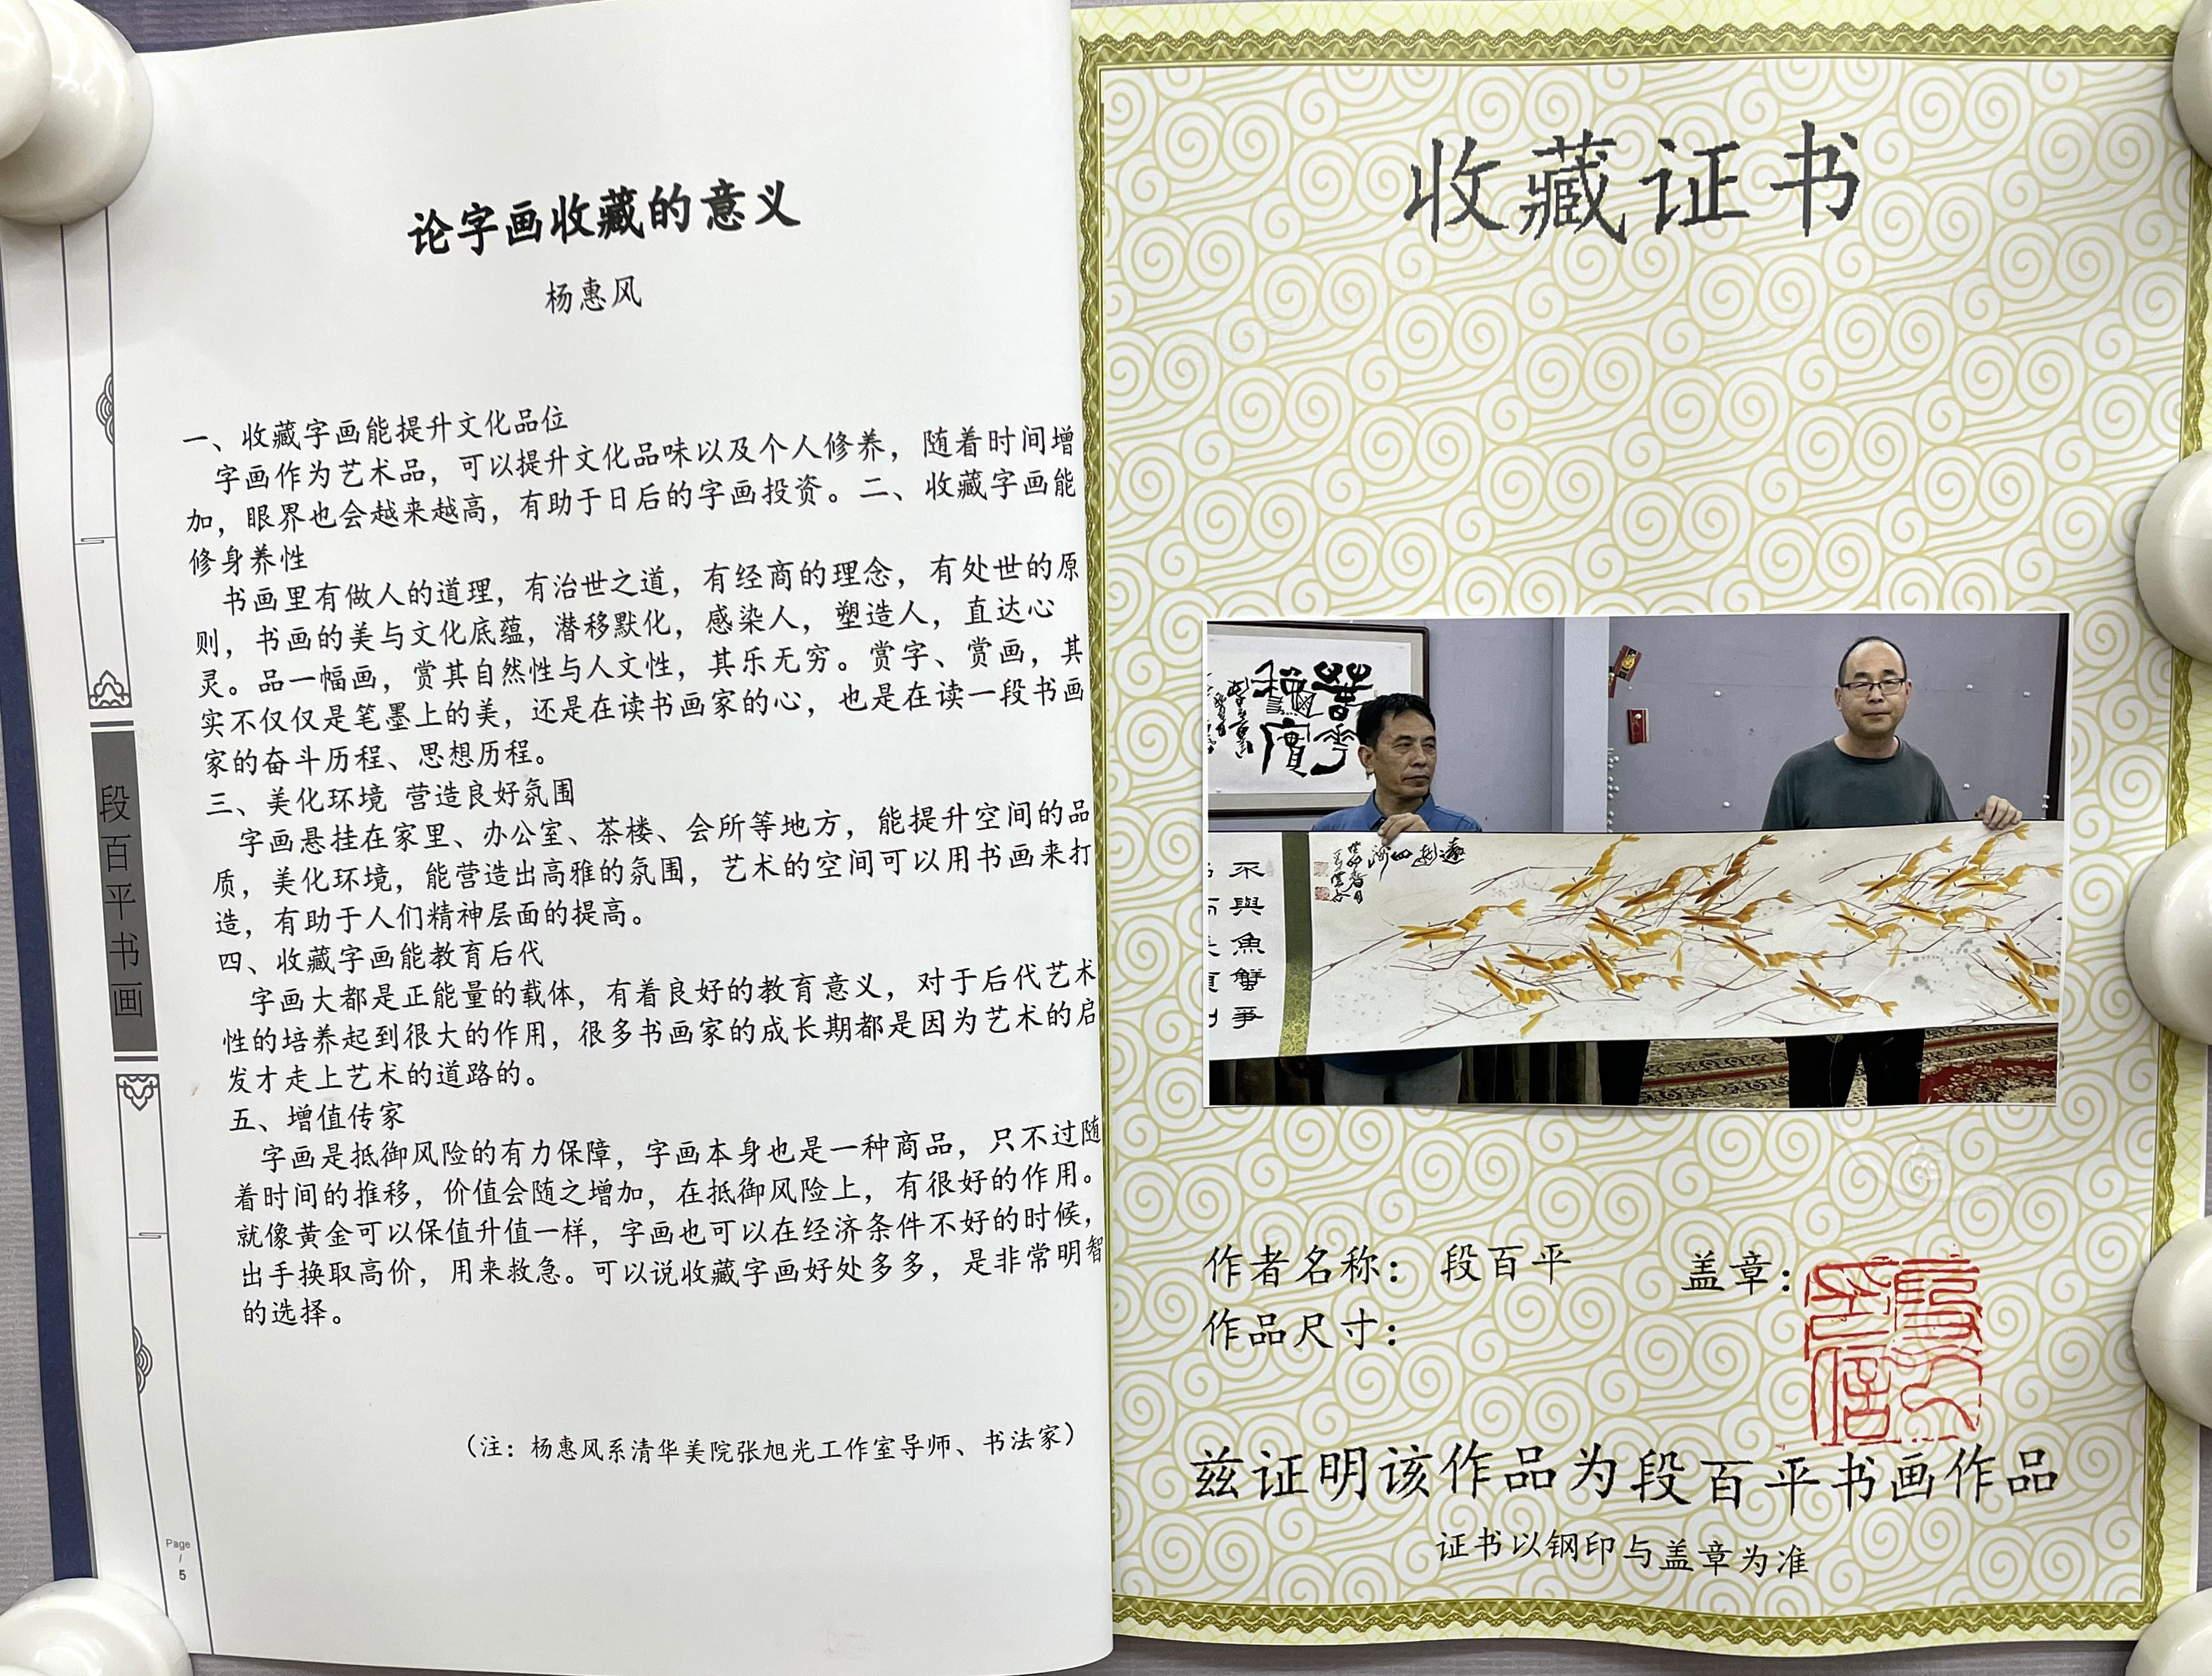 论字画收藏的意义
杨惠风
一、收藏字画能提升文化品位
字画作为艺术品，可以提升文化品味以及个人修养，随着时间增
加，眼界也会越来越高，有助于日后的字画投资。二、收藏字画能
修身养性
书画里有做人的道理，有治世之道，有经商的理念，有处世的原
则，书画的美与文化底蕴，潜移默化，感染人，塑造人，直达心
灵。品一幅画，赏其自然性与人文性，其乐无穷。赏字、赏画，其
实不仅仅是笔墨上的美，还是在读书画家的心，也是在读一段书画
家的奋斗历程、思想历程。
三、美化环境 营造良好氛围
字画悬挂在家里、办公室、茶楼、会所等地方，能提升空间的品
质，美化环境，能营造出高雅的氛围，艺术的空间可以用书画来打
造，有助于人们精神层面的提高。
四、收藏字画能教育后代
字画大都是正能量的载体，有着良好的教育意义，对于后代艺术
性的培养起到很大的作用，很多书画家的成长期都是因为艺术的启
发才走上艺术的道路的。
五、增值传家
字画是抵御风险的有力保障，字画本身也是一种商品，只不过随
着时间的推移，价值会随之增加，在抵御风险上，有很好的作用。
就像黄金可以保值升值一样，字画也可以在经济条件不好的时候，
出手换取高价，用来救急。可以说收藏字画好处多多，是非常明智
的选择。
（注：杨惠风系清华美院张旭光工作室导师、书法家）
段百平书画
Page
/
5
收藏证书
不與魚蟹爭
作者名称： 段百平
盖章：
作品尺寸：
兹证明该作品为段百平书画作品
证书以钢印与盖章为准